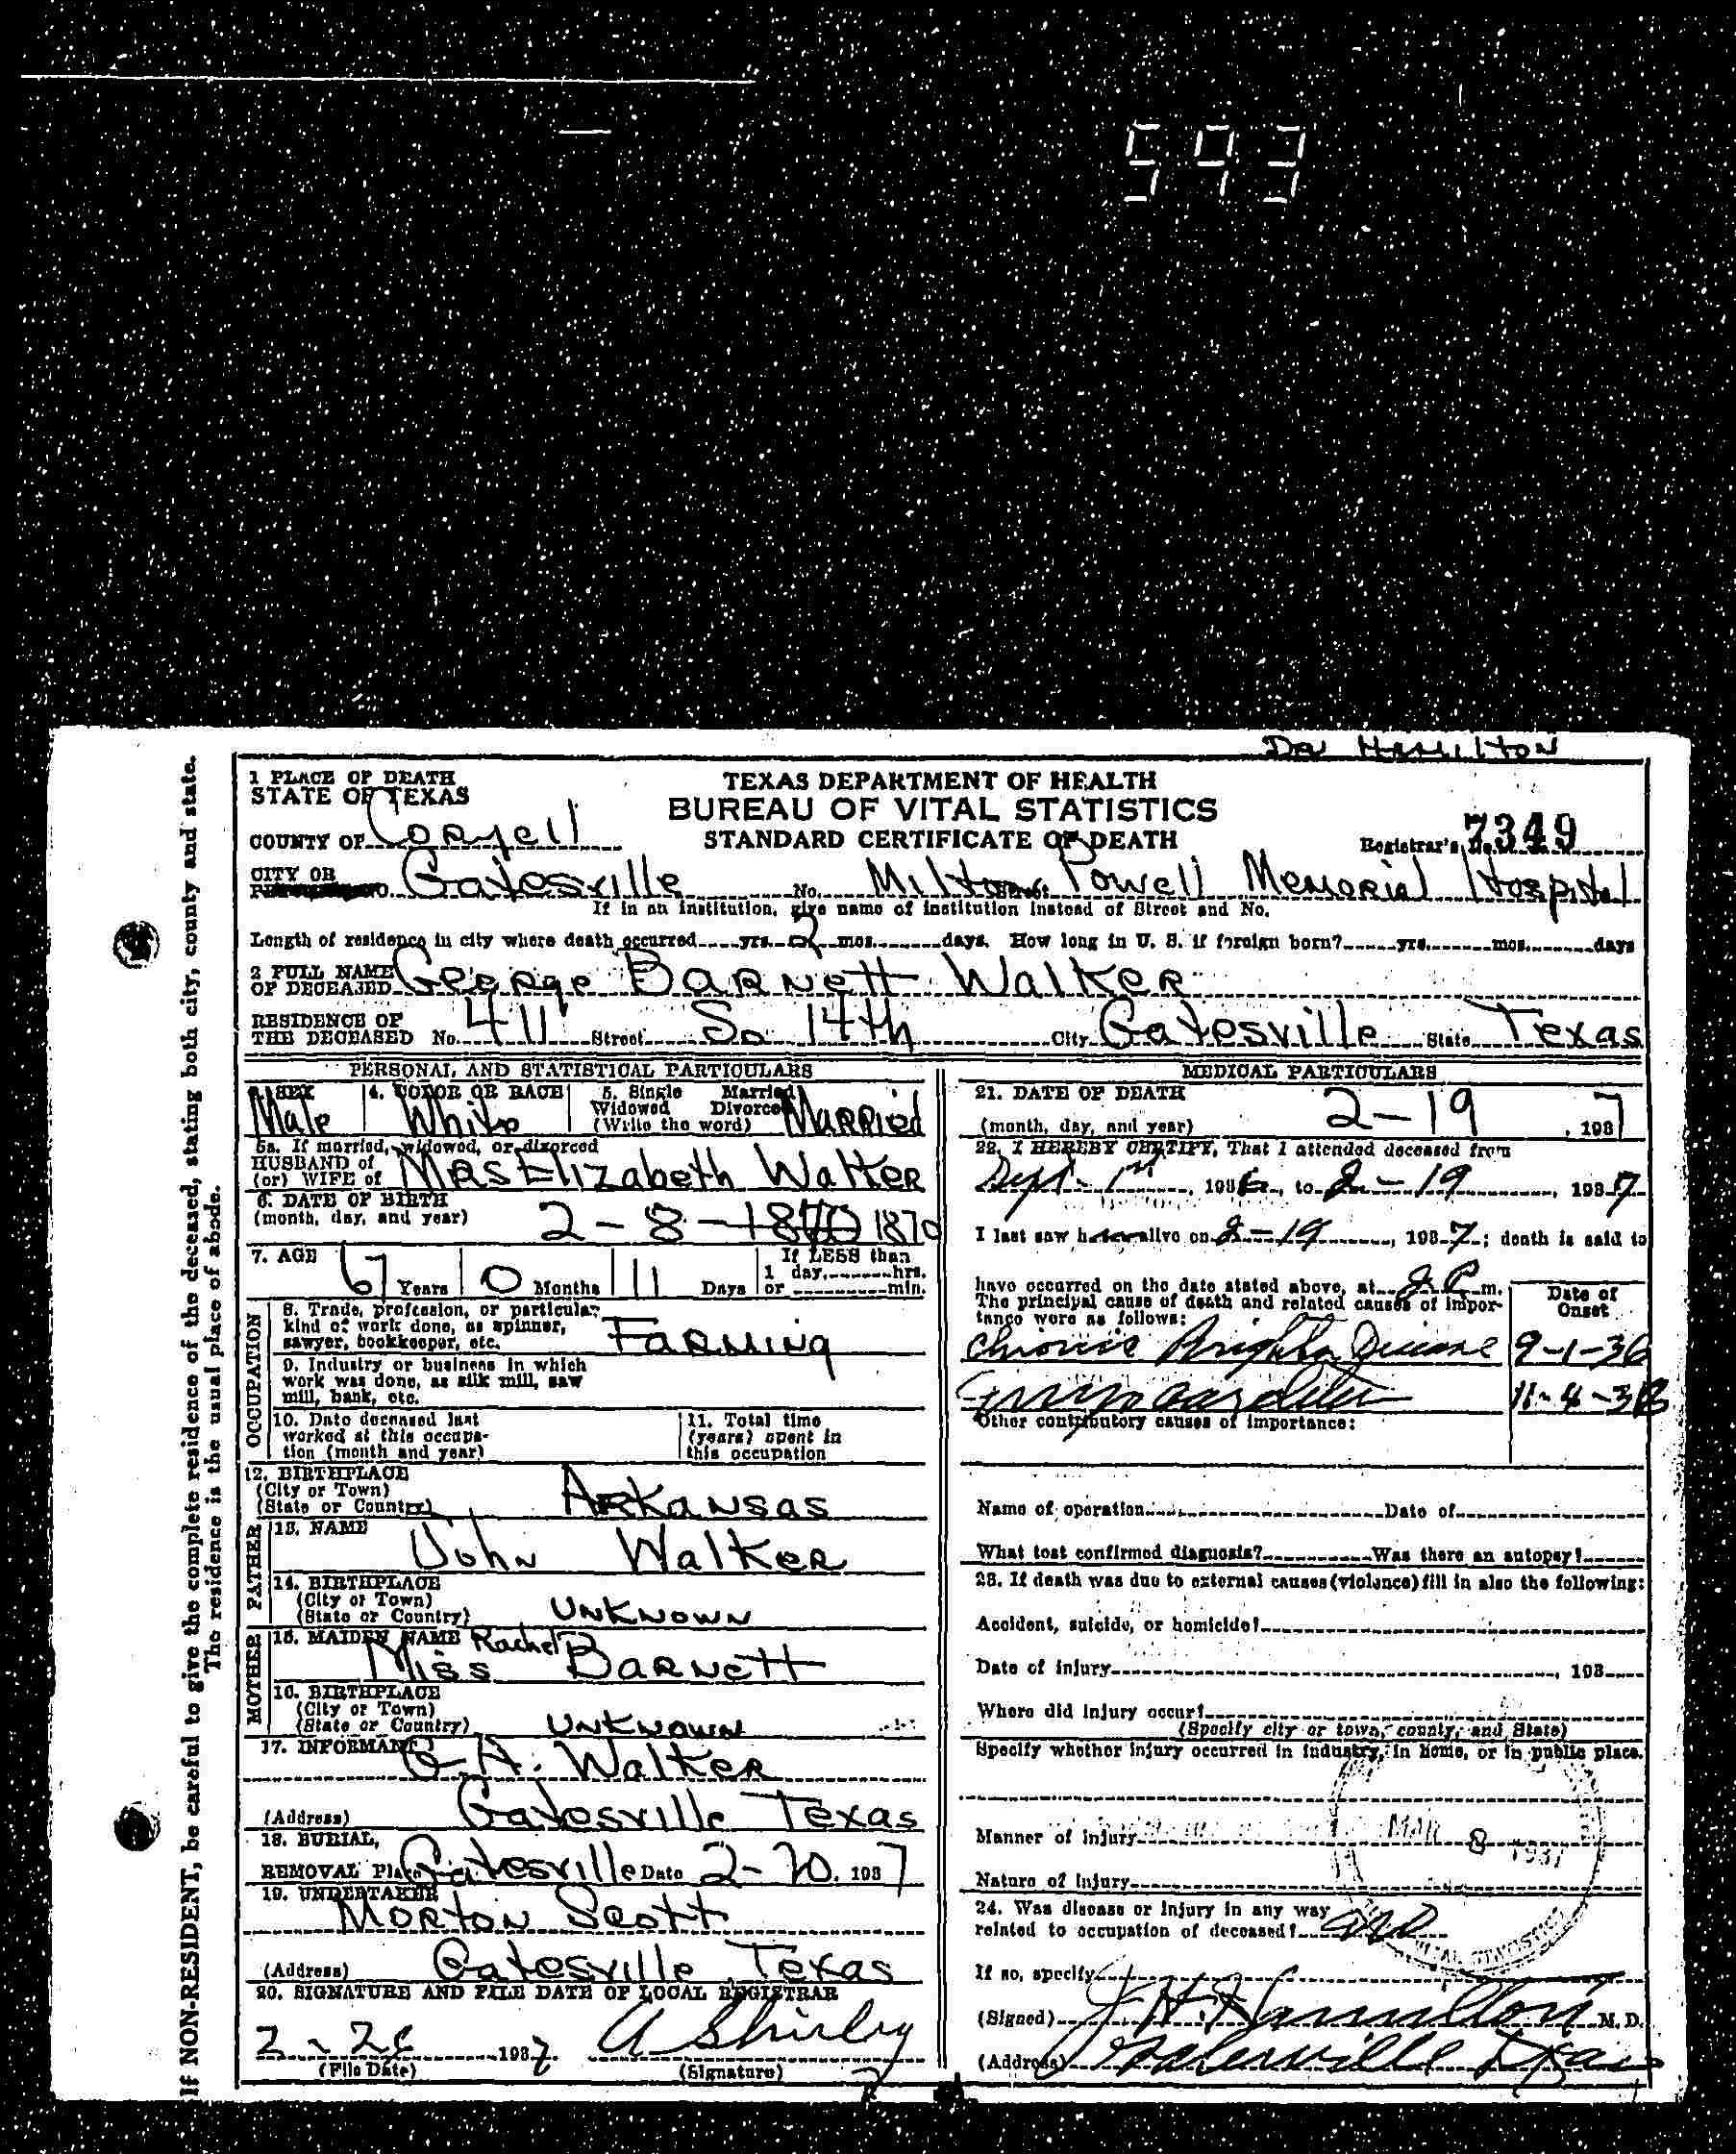 593
Dr Hamilton
1 PLACE OF DEATH
STATE OF TEXAS
TEXAS DEPARTMENT OF HEALTH
BUREAU OF VITAL STATISTICS
STANDARD CERTIFICATE OF DEATH
COUNTY OF Coryell
Registrar's No. 7349
CITY OR Gatesville No. Milton Powell Memorial Hospital
If in an institution, give name of institution instead of Street and No.
Length of residence in city where death occurred yrs. 2 mos. days. How long in U. S. if foreign born? yrs. mos. days
2 FULL NAME OF DECEASED George Barnett Walker
RESIDENCE OF THE DECEASED No. 411 Street So 14th City Gatesville State Texas
PERSONAL AND STATISTICAL PARTICULARS
SEX Male 4. COLOR OR RACE White 5. Single Married Widowed Divorced (Write the word) Married
5a. If married, widowed, or divorced
HUSBAND of (or) WIFE of Mrs Elizabeth Walker
6. DATE OF BIRTH (month, day, and year) 2-8-1870 1870
7. AGE 67 Years 0 Months 11 Days If LESS than 1 day, hrs. or min.
OCCUPATION
8. Trade, profession, or particular kind of work done, as spinner, sawyer, bookkeeper, etc. Farming
9. Industry or business in which work was done, as silk mill, saw mill, bank, etc.
10. Date deceased last worked at this occupation (month and year)
11. Total time (years) spent in this occupation
12. BIRTHPLACE (City or Town) (State or Country) Arkansas
FATHER
13. NAME John Walker
14. BIRTHPLACE (City or Town) (State or Country) Unknown
MOTHER
15. MAIDEN NAME Miss Rachel Barnett
16. BIRTHPLACE (City or Town) (State or Country) Unknown
17. INFORMANT G.H. Walker
(Address) Gatesville Texas
18. BURIAL, REMOVAL Place Gatesville Date 2-20, 1937
19. UNDERTAKER Morton Scott
(Address) Gatesville, Texas
20. SIGNATURE AND FILE DATE OF LOCAL REGISTRAR
2-26 1937 A Shirley
(File Date) (Signature)
MEDICAL PARTICULARS
21. DATE OF DEATH (month, day, and year) 2-19, 1937
22. I HEREBY CERTIFY, That I attended deceased from
Sept. 1st, 1936, to 2-19, 1937
I last saw h alive on 2-19, 1937; death is said to
have occurred on the date stated above, at 2 P. m.
The principal cause of death and related causes of importance were as follows:
Date of Onset
Chronic Brights Disease 9-1-36
myocarditis 11-4-36
Other contributory causes of importance:
Name of operation Date of
What test confirmed diagnosis? Was there an autopsy?
23. If death was due to external causes (violence) fill in also the following:
Accident, suicide, or homicide?
Date of injury , 193
Where did injury occur?
(Specify city or town, county, and State)
Specify whether injury occurred in industry, in home, or in public place.
Manner of injury
MAR 8 1937
Nature of injury
24. Was disease or injury in any way related to occupation of deceased? no
If so, specify
(Signed) Hamilton M. D.
(Address) Gatesville Texas
If NON-RESIDENT, be careful to give the complete residence of the deceased, stating both city, county and state.
The residence is the usual place of abode.